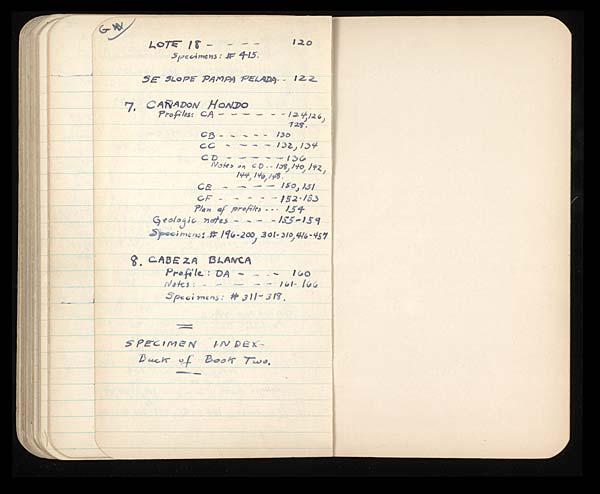 LOTE 18 - - - - 120
Specimens: # 415.
SE SLOPE PAMPA PELADA - - 122
7. CAÑADON HONDO
Profiles: CA - - - - - - 124, 126,
128.
CB - - - - - 130
CC - - - - 132, 134
CD - - - - - - 136
Notes on CD - - 138, 140, 142,
144, 146, 148.
CE - - - - - 150, 151
CF - - - - - 152-153
Plan of profiles - - - 154
Geologic notes - - - - 155-159
Specimens: # 196-200, 301-310, 416-457
8. CABEZA BLANCA
Profile: DA - - - - 160
Notes: - - - - - - 161-166
Specimens: # 311-318.
SPECIMEN INDEX-
Back of Book Two.